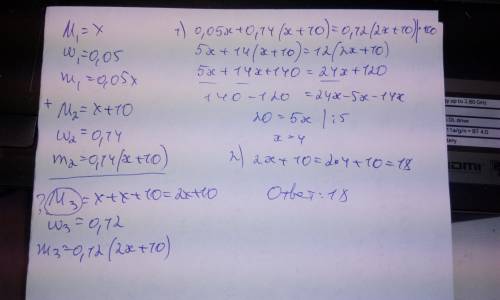 M₁ = x
w₁ = 0,05
m₁ = 0,05x
+ M₂ = x + 10
w₂ = 0,14
m₂ = 0,14(x+10)
? M₃ = x + x + 10 = 2x+10
w₃ = 0,12
m₃ = 0,12(2x+10)
1) 0,05x + 0,14(x+10) = 0,12(2x+10) |·100
5x + 14(x+10) = 12(2x+10)
5x + 14x + 140 = 24x + 120
140 - 120 = 24x - 5x - 14x
20 = 5x |:5
x = 4
2) 2x + 10 = 2·4 + 10 = 18
Ответ: 18